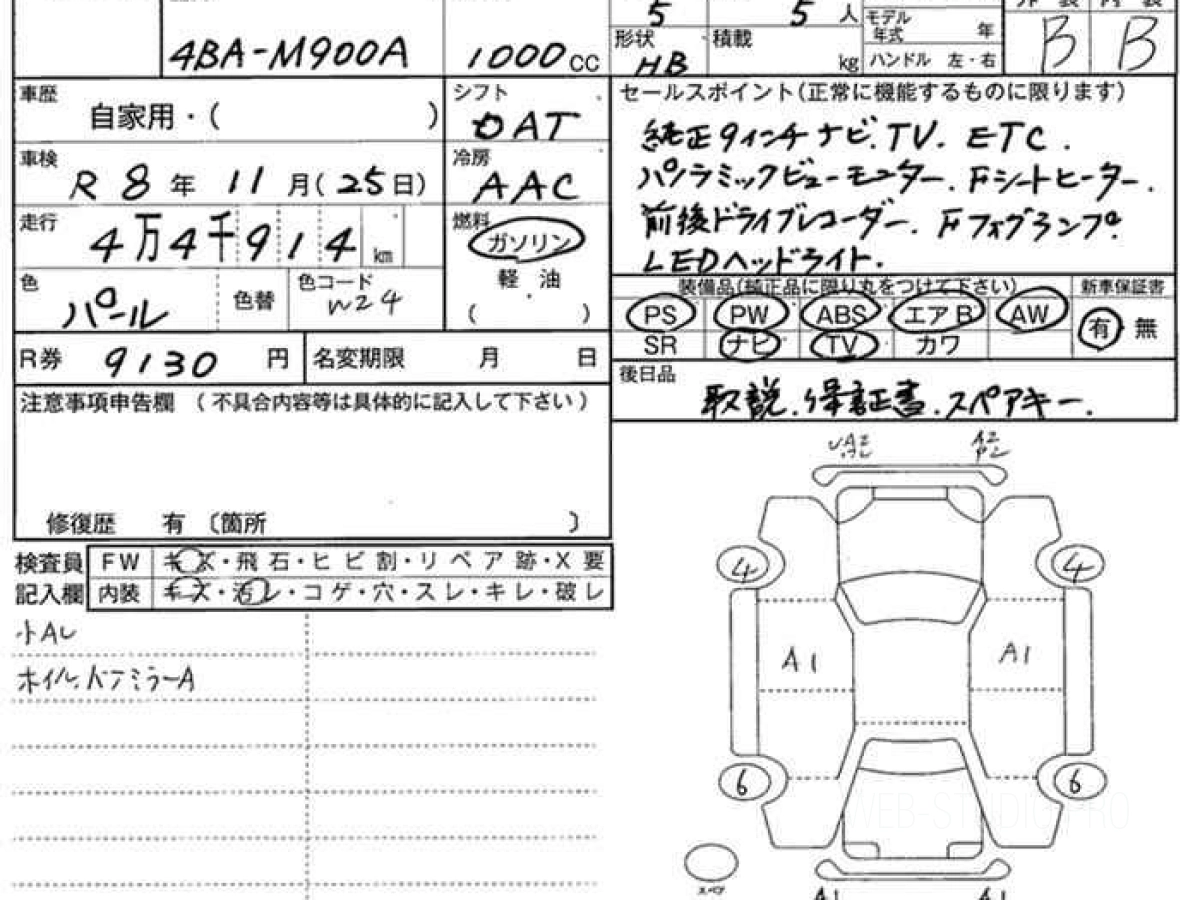 5 5 人
4BA-M900A 1000 cc
形状 HB 積載 kg
モデル年式 年
ハンドル 左・右
B B
車歴 自家用・( )
シフト DAT
車検 R 8 年 11 月(25日)
冷房 AAC
走行 4万4千914 km
燃料 ガソリン
軽 油
( )
色 パール 色替 色コード W24
R券 9130 円 名変期限 月 日
セールスポイント(正常に機能するものに限ります)
純正9インチナビ.TV. ETC.
パノラミックビューモニター.Fシートヒーター.
前後ドライブレコーダー. Fフォグランプ.
LEDヘッドライト.
装備品(純正品に限り丸をつけて下さい) 新車保証書
PS PW ABS エアB AW 有 無
SR ナビ TV カワ
後日品
取説.保証書.スペアキー.
注意事項申告欄 (不具合内容等は具体的に記入して下さい)
修復歴 有 〔箇所 〕
検査員 FW キズ・飛石・ヒビ割・リペア跡・X要
記入欄 内装 キズ・汚レ・コゲ・穴・スレ・キレ・破レ
小AU
ホイル.ドアミラーA
UA2 A2
4 4
A1 A1
6 6
WEB-STUDIO.PRO
スペア
A1 A1